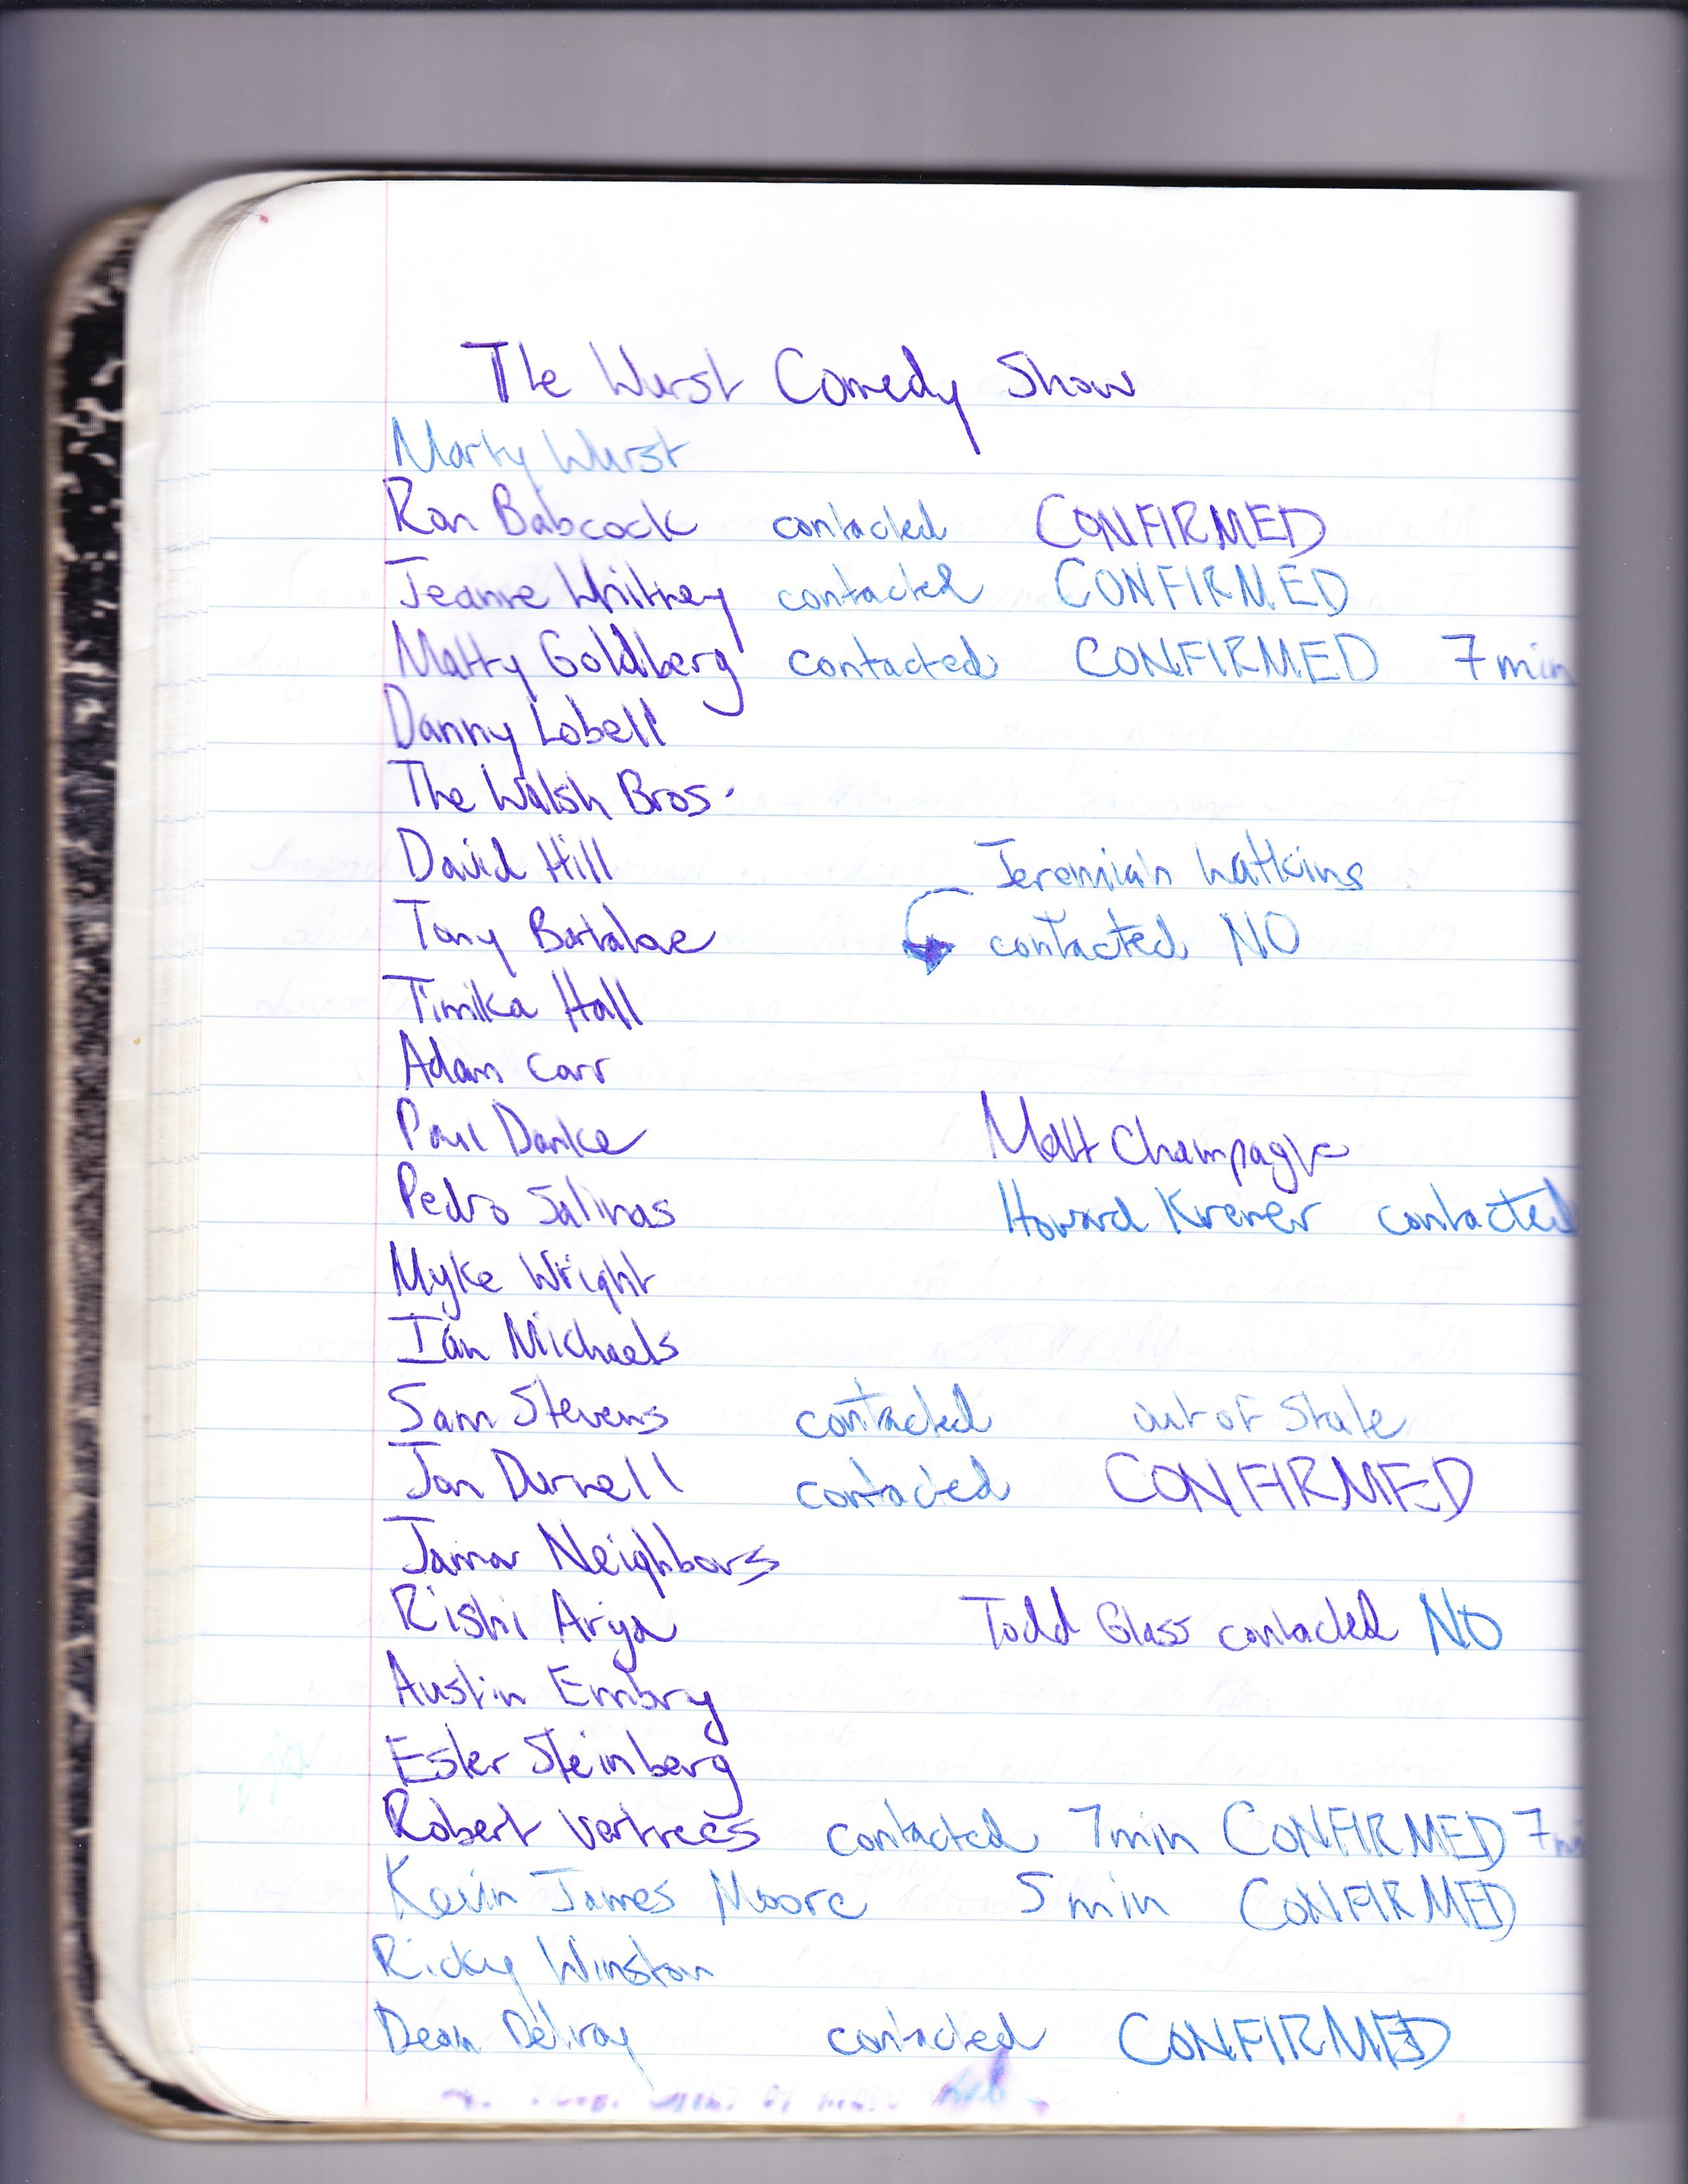 The Wurst Comedy Show
Marty Wurst
Ron Babcock contacted CONFIRMED
Jeanne Whitney contacted CONFIRMED
Matty Goldberg contacted CONFIRMED 7 min
Danny Lobell
The Walsh Bros.
David Hill Jeremiah Watkins
Tony Bartalone contacted NO
Timika Hall
Adam Carr
Paul Danke Matt Champagne
Pedro Salinas Howard Kremer contacted
Myke Wright
Ian Michaels
Sam Stevens contacted out of State
Jon Durnell contacted CONFIRMED
Jamar Neighbors
Rishi Arya Todd Glass contacted NO
Austin Embry
Esler Steinberg
Robert Vertrees contacted 7min CONFIRMED 7
Kevin James Moore 5 min CONFIRMED
Ricky Winston
Dean Delray contacted CONFIRMED